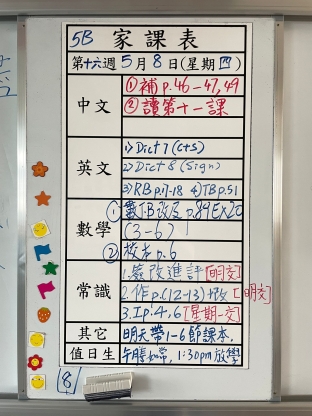 5B 家課表
第十六週 5月8日(星期四)
中文
①補 p.46-47,49
②讀第十一課
英文
1) Dict 7 (C+S)
2) Dict 8 (Sign)
3) RB p.17-18 4) TB p.51
數學
① 數T.B改及 p.89 Ex20
(3-6)
② 校本 p.6
常識
1.簽改進評[明交]
2.作p.(12-13)+改[明交]
3.Ip.4,6[星期一交]
其它
明天帶1-6節課本.
值日生
午膳如常, 1:30pm 放學
8